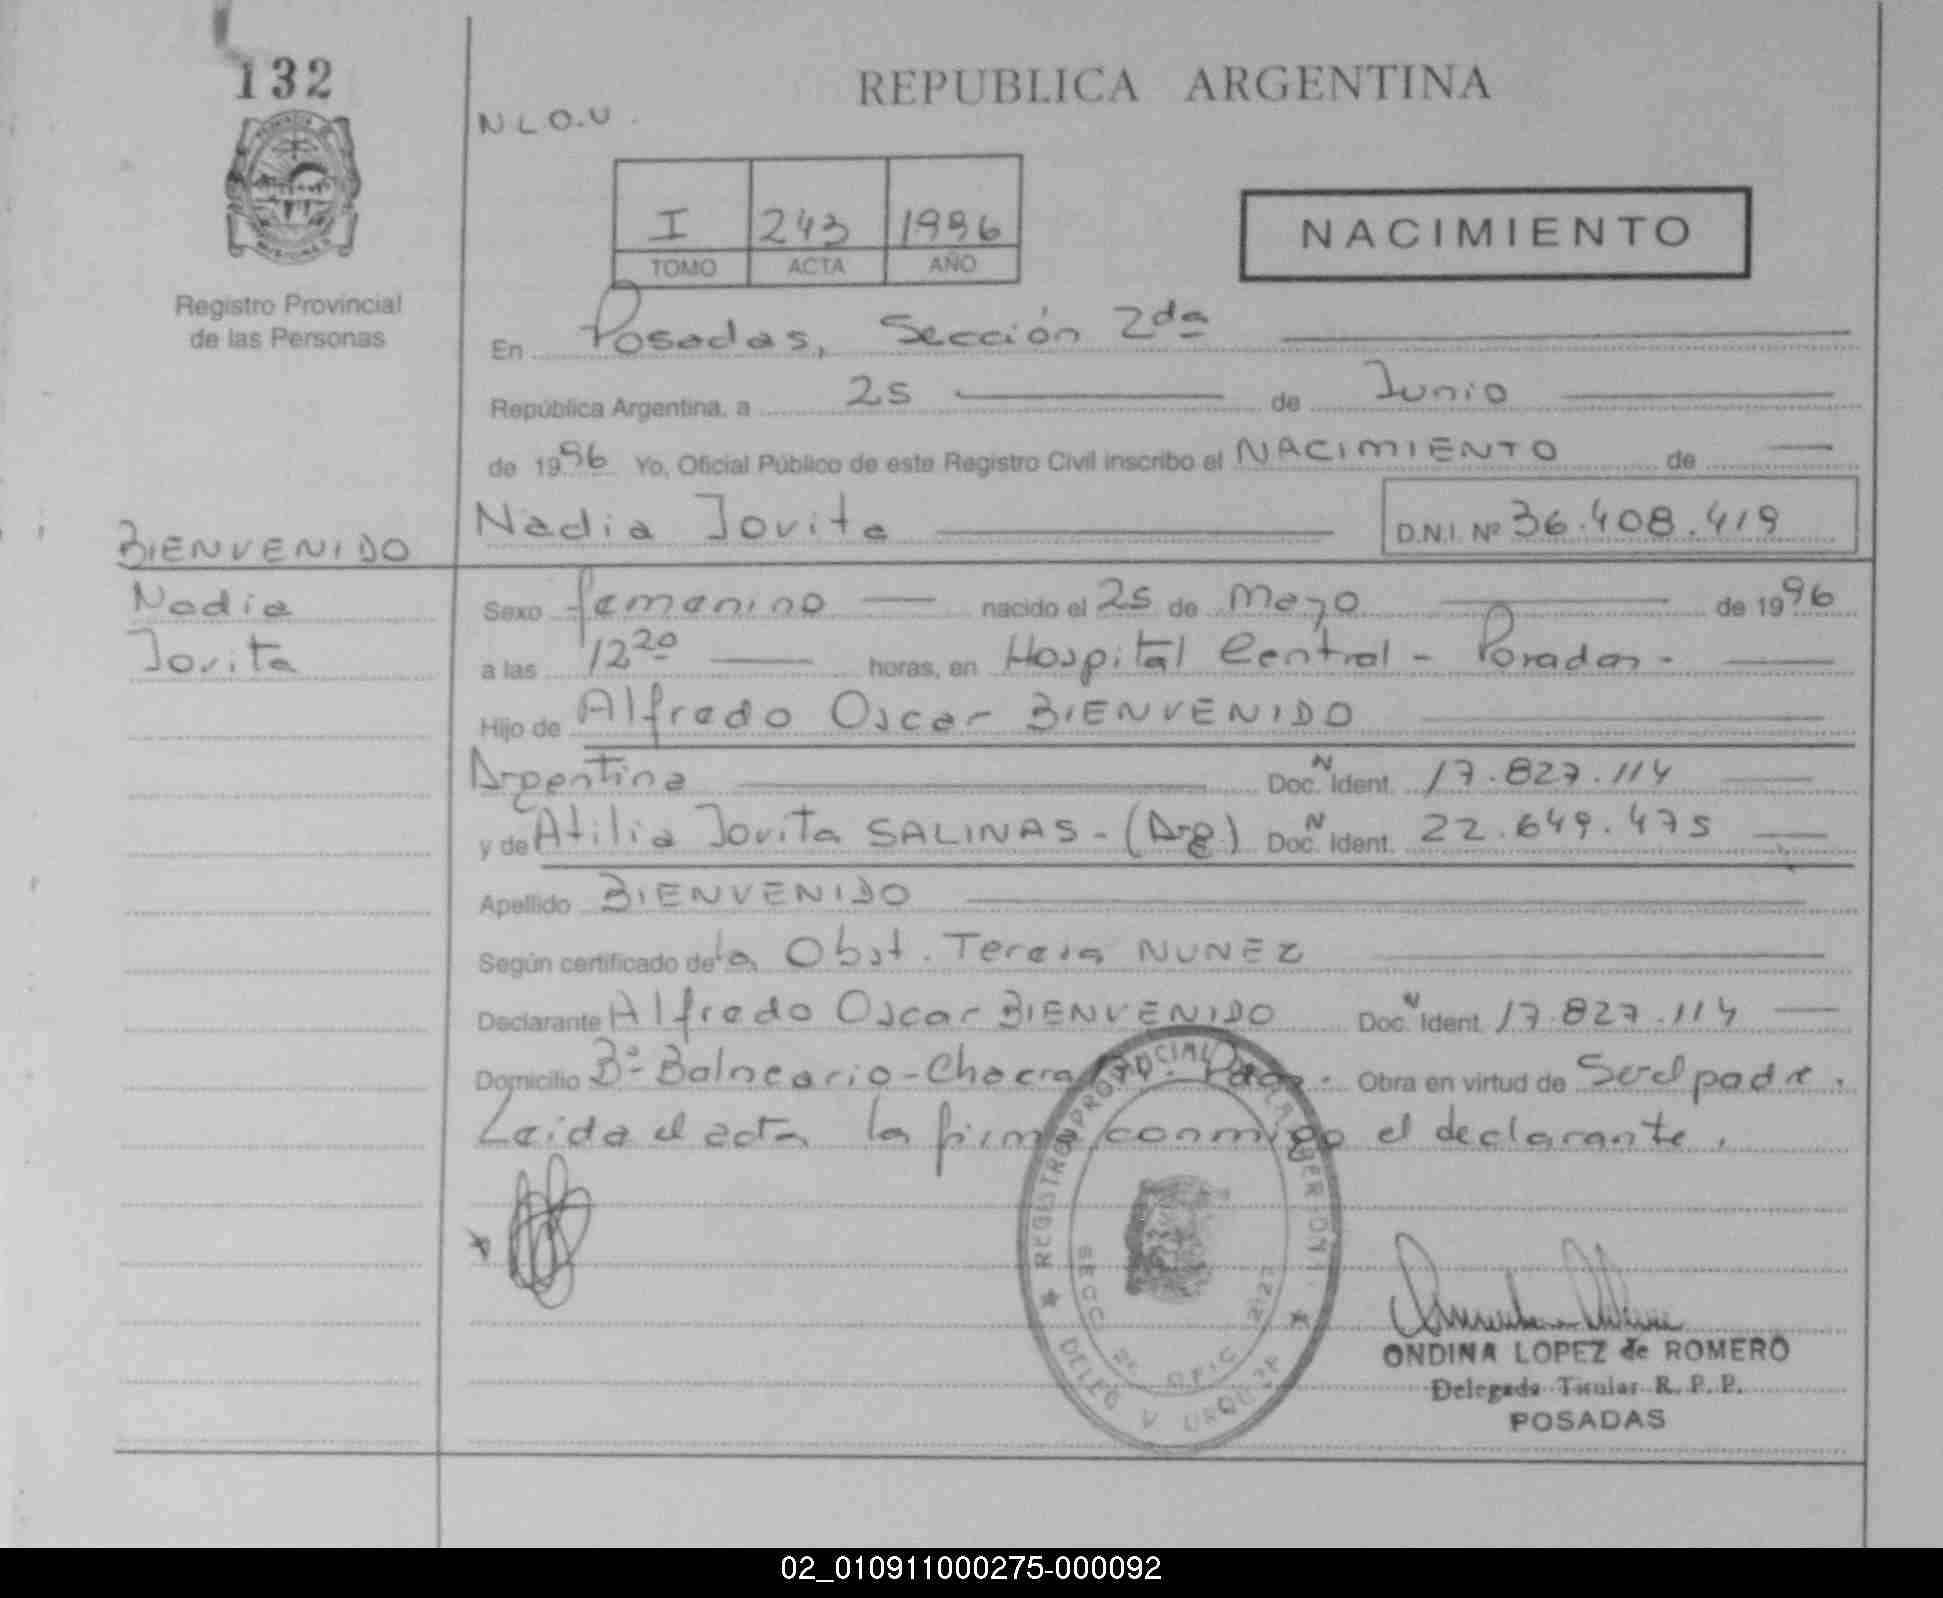 132
REPUBLICA ARGENTINA
N L O.U.
I 243 1996
TOMO ACTA AÑO
NACIMIENTO
Registro Provincial
de las Personas
En Posadas, Sección 2da
República Argentina, a 25 de Junio
de 1996 Yo, Oficial Público de este Registro Civil inscribo el NACIMIENTO de
Nadia Jovita D.N.I. Nº 36.408.419
BIENVENIDO
Nadia
Jovita
Sexo femenino nacido el 25 de Mayo de 1996
a las 12 20 horas, en Hospital Central - Posadas -
Hijo de Alfredo Oscar BIENVENIDO
Argentina Doc. N Ident. 17.827.114
y de Atilia Jovita SALINAS - (Arg) Doc. N Ident. 22.649.475
Apellido BIENVENIDO
Según certificado de la Obst. Teresa NUNEZ
Declarante Alfredo Oscar BIENVENIDO Doc. N Ident. 17.827.114
Domicilio Bº Balneario - Chacra Obra en virtud de Ser el padre.
Leida el acta la firma conmigo el declarante.
REGISTRO PROVINCIAL DE LAS PERSONAS
SECC 2ª OFIC
DELEG
ONDINA LOPEZ de ROMERO
Delegada Titular R. P. P.
POSADAS
02_010911000275-000092